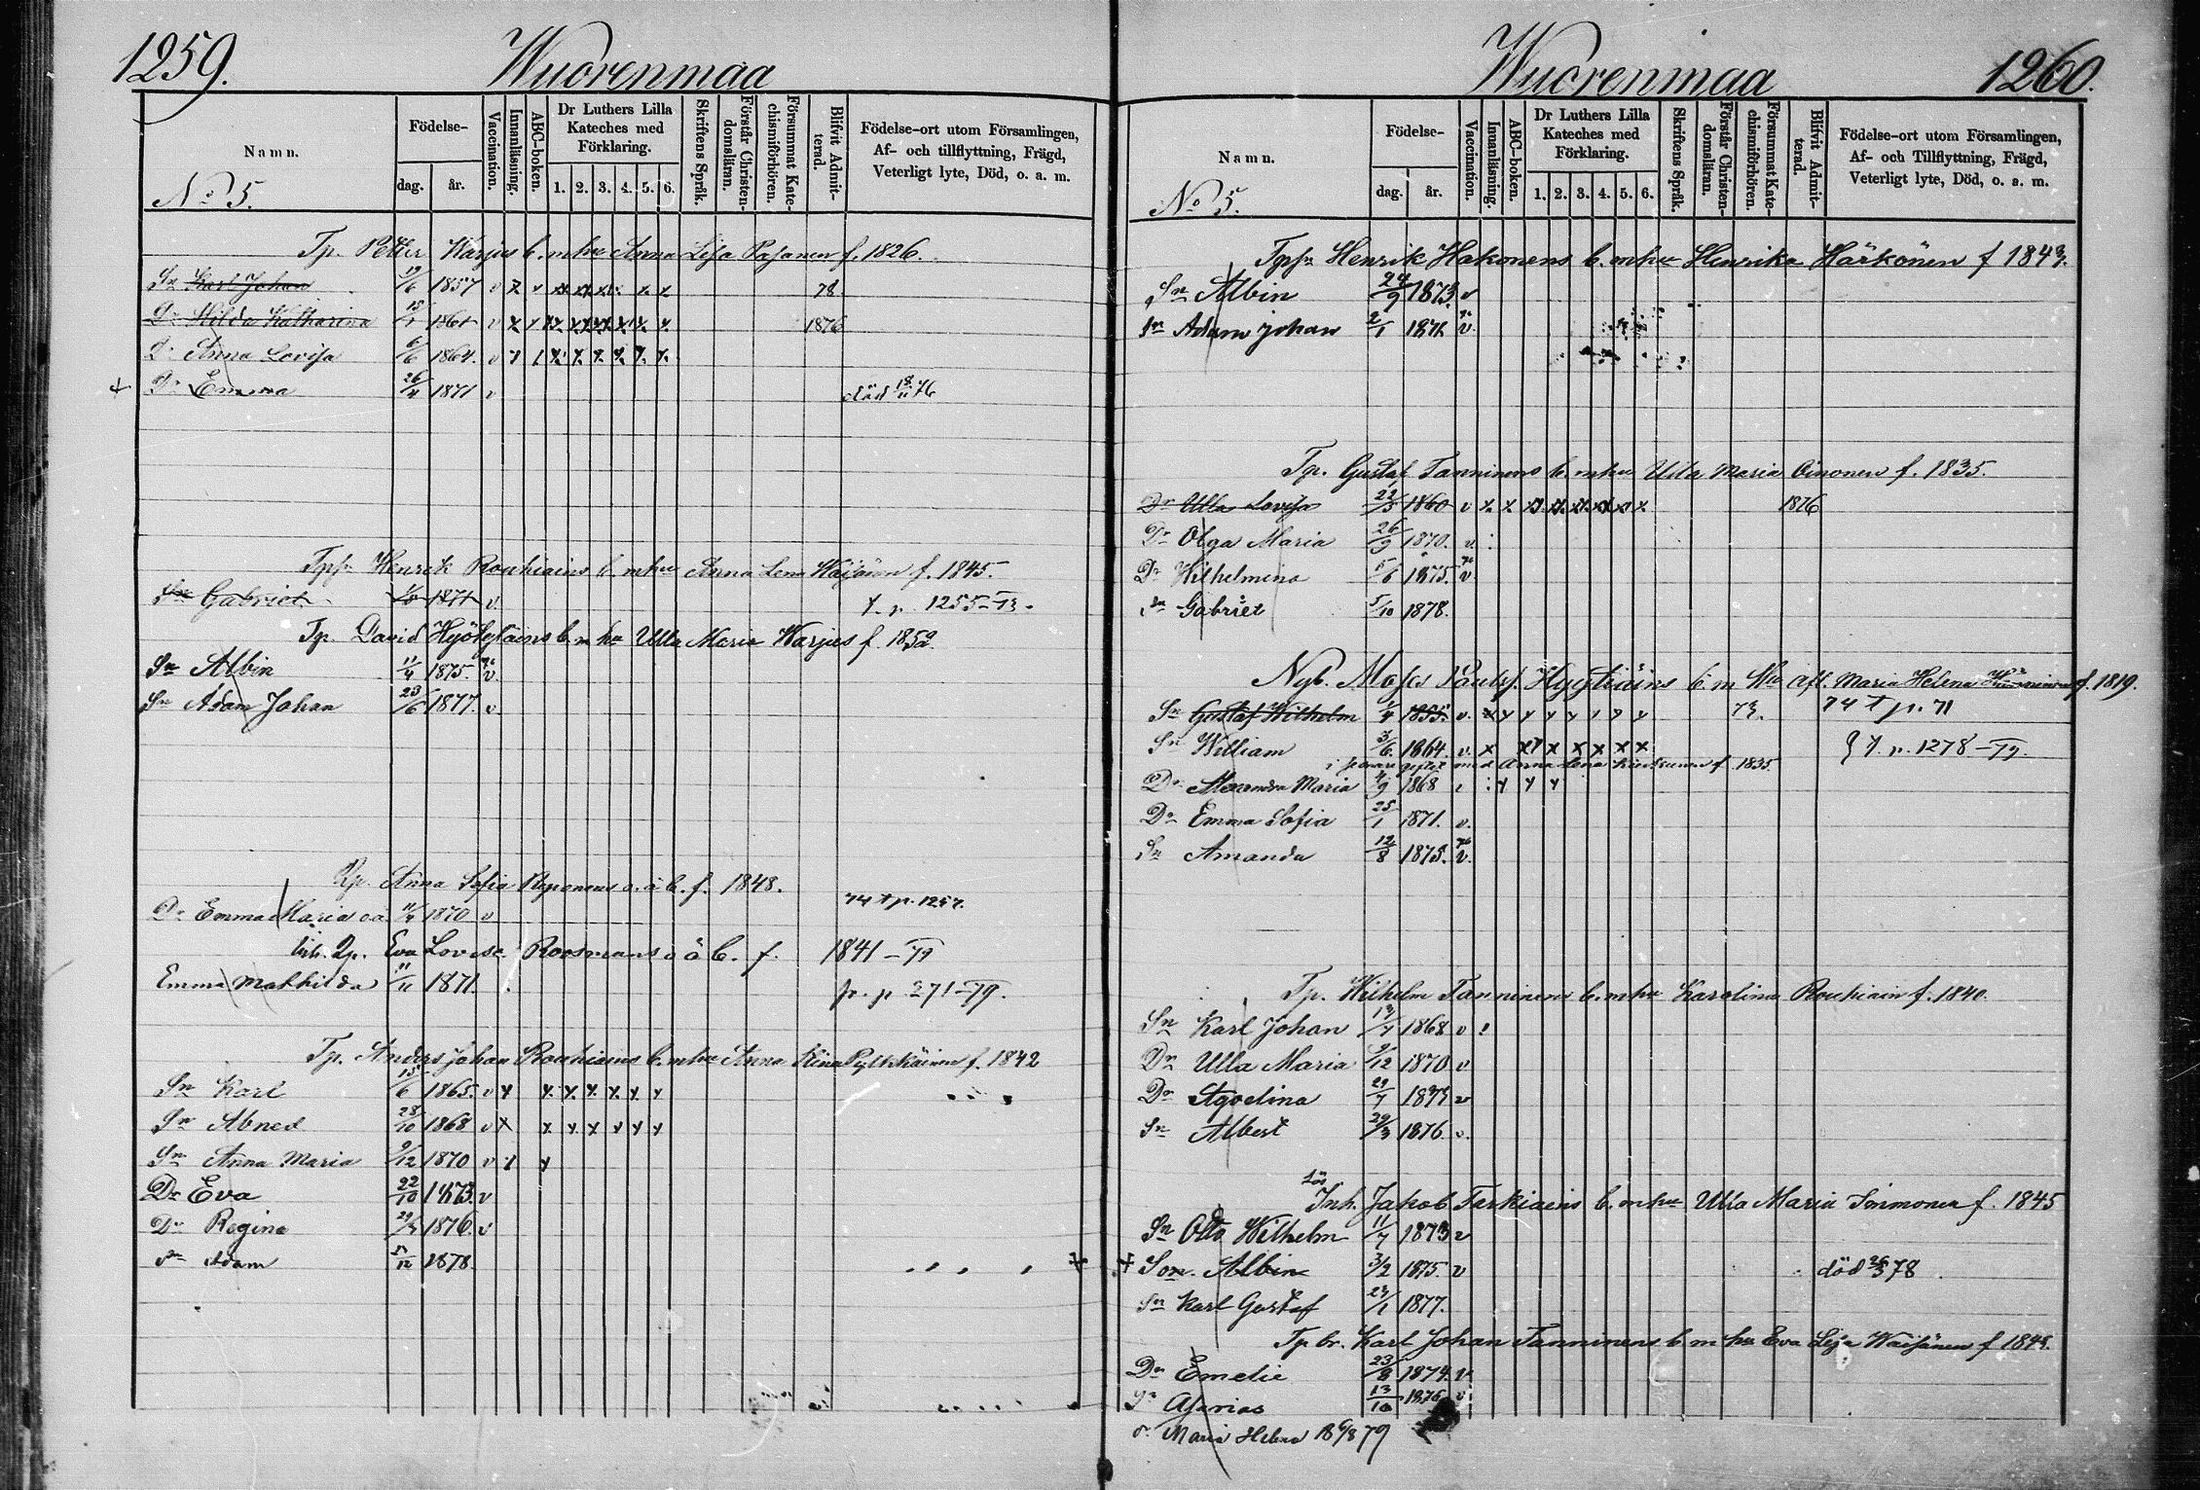 1259. Wuorenmaa
Namn. Födelse- dag. år. Vaccination. Innanläsning. ABC-boken. Dr Luthers Lilla Kateches med Förklaring. 1. 2. 3. 4. 5. 6. Skriftens Språk. Förstår Christendomsläran. Försummat Katechismiförhören. Blifvit Admitterad. Födelse-ort utom Församlingen, Af- och tillflyttning, Frägd, Veterligt lyte, Död, o. a. m.
No 5.
Tp. Petter Karjus b. m hu Anna Lisa Pasanen f. 1826.
Sn Karl Johan 19/6 1857 v x x x x x x x 78
Dr Hilda Katharina 1861 v x x x x x x x x 1876
Dr Anna Lovisa 6/6 1864. v x x x x x x x
+ Dr Emma 26/4 1871 v död 18/11 76
Tpsn Henrik Rouhiains b. m hu Anna Lena f. 1845.
Sn Gabriel 1871 v. p. 1255-73.
Tp. David b. m hu Ulla Maria Karjus f. 1852
Sn Albin 11/4 1875. v.
Sn Adam Johan 23/6 1877. v
Anna Sofia Reponens o. ä. b. f. 1848.
Dr Emma Maria o ä 11/4 1870 v 74 + p. 1257.
Eva Lovisa Roosmans o ä b. f. 1841-79
Emma Mathilda 11/11 1871. p. 271-79.
Tp. Anders Johan Rouhiains b. m hu Anna Stina f. 1842
Sn Karl 15/6 1865. v x x x x x x x
Sn Abned 28/10 1868 v x x x x x x x
Sn Anna Maria 9/12 1870 v x x
Dr Eva 22/10 1873. v
Dr Regina 1876. v
Sn Adam 5/12 1878.
Wuorenmaa 1260.
Namn. Födelse- dag. år. Vaccination. Innanläsning. ABC-boken. Dr Luthers Lilla Kateches med Förklaring. 1. 2. 3. 4. 5. 6. Skriftens Språk. Förstår Christendomsläran. Försummat Katechismiförhören. Blifvit Admitterad. Födelse-ort utom Församlingen, Af- och Tillflyttning, Frägd, Veterligt lyte, Död, o. a. m.
No 5.
Tpsn Henrik Hakonens b. m hu Henrika Härkönen f 1843.
Sn Albin 24/9 1873. v
Sn Adam Johan 2/1 v.
Tp. Gustaf Tanninens b. m hu Ulla Maria Oinonen f. 1835.
Dr Ulla Lovisa 22/5 1860 v x x x x x x x x 1876
Dr Olga Maria 26/9 1870. v.
Dr Wilhelmina 5/6 1875. v
Sn Gabriel 5/10 1878.
Nyb. Moses b. m hu afl. Maria Helena f. 1819.
Sn Gustaf Wilhelm 1/4 1855. v. x x x x x x x x 73. 74 + p. 71
Sn William 3/6. 1864. v. x x x x x x x p. 1278-79.
giftet med Anna Lena f. 1835
Dr Alexandra Maria 4/9 1868 x x x
Dr Emma Sofia 25/1 1871. v.
Sn Amanda 12/8 1875. v.
Tp. Wilhelm Tanninens b. m hu Karolina Rouhiain f. 1840.
Sn Karl Johan 1868 v
Dr Ulla Maria 9/12 1870 v
Dr Agvelina 29/7 1873 v
Sn Albert 29/3 1876. v.
Lös
Inh. Jakob Tarkiains b. m hu Ulla Maria Simonen f. 1845
Sn Otto Wilhelm 11/7 1873 v
+ Son. Albin 3/2 1875. v död 26/3 78
Sn Karl Gustaf 24/1 1877.
Tp br. Karl Johan Tanninens b. m hu Eva Lisa Waisänen f
Dr Emelie 23/8 1874. v
Sn 13/10 1876 v
Dr Maria Helena 18 6/8 79